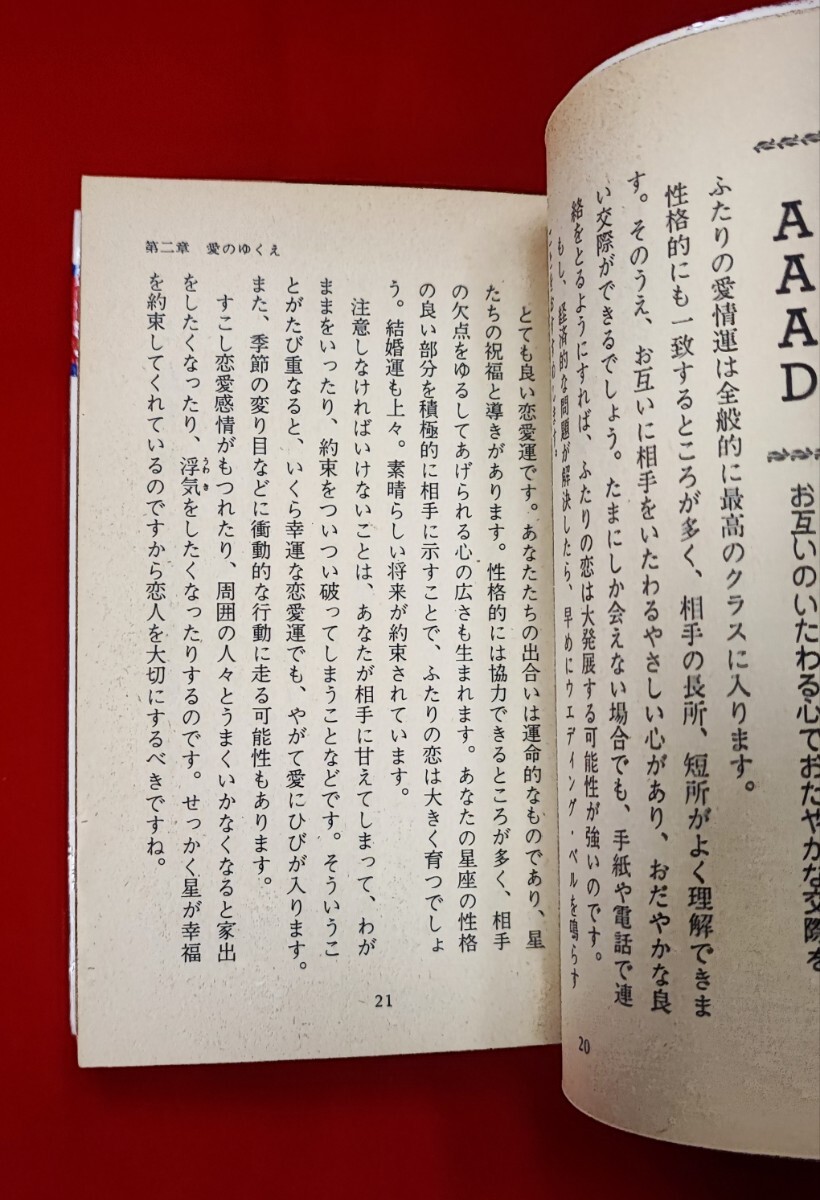 A
A
A
D
お互いのいたわる心でおだやかな交際を
ふたりの愛情運は全般的に最高のクラスに入ります。
性格的にも一致するところが多く、相手の長所、短所がよく理解できま
す。そのうえ、お互いに相手をいたわるやさしい心があり、おだやかな良
い交際ができるでしょう。たまにしか会えない場合でも、手紙や電話で連
絡をとるようにすれば、ふたりの恋は大発展する可能性が強いのです。
もし、経済的な問題が解決したら、早めにウエディング・ベルを鳴らす
20
第二章 愛のゆくえ
とても良い恋愛運です。あなたたちの出合いは運命的なものであり、星
たちの祝福と導きがあります。性格的には協力できるところが多く、相手
の欠点をゆるしてあげられる心の広さも生まれます。あなたの星座の性格
の良い部分を積極的に相手に示すことで、ふたりの恋は大きく育つでしょ
う。結婚運も上々。素晴らしい将来が約束されています。
注意しなければいけないことは、あなたが相手に甘えてしまって、わが
ままをいったり、約束をついつい破ってしまうことなどです。そういうこ
とがたび重なると、いくら幸運な恋愛運でも、やがて愛にひびが入ります。
また、季節の変り目などに衝動的な行動に走る可能性もあります。
すこし恋愛感情がもつれたり、周囲の人々とうまくいかなくなると家出
をしたくなったり、浮気をしたくなったりするのです。せっかく星が幸福
を約束してくれているのですから恋人を大切にするべきですね。
21